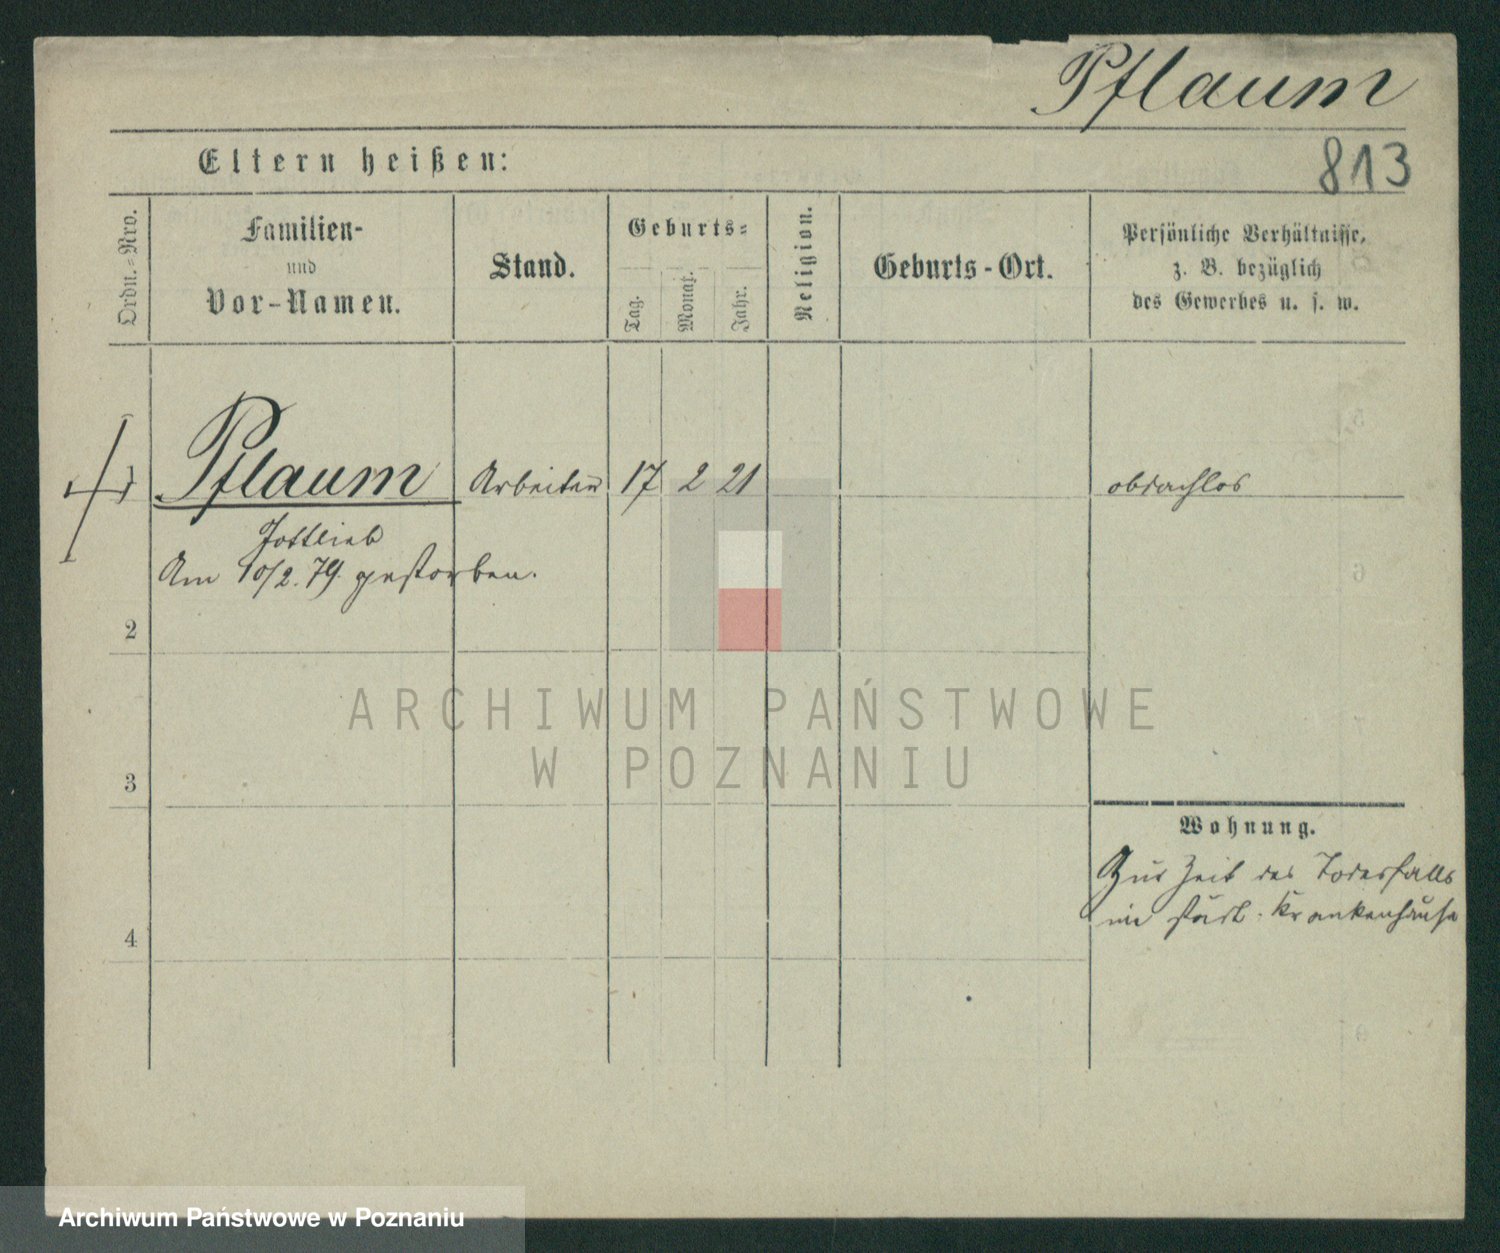 Pflaum
813
Eltern heißen:
Ordn.-Nro.
Familien-
und
Vor-Namen.
Stand.
Geburts-
Tag.
Monat.
Jahr.
Religion.
Geburts-Ort.
Persönliche Verhältnisse,
z. B. bezüglich
des Gewerbes u. s. w.
Pflaum Arbeiter 17 2 21 obdachlos
Gottlieb
Am 10/2. 79. gestorben.
2
3
4
Wohnung.
Zur Zeit des Todesfalls
im städt. Krankenhause
ARCHIWUM PAŃSTWOWE
W POZNANIU
Archiwum Państwowe w Poznaniu